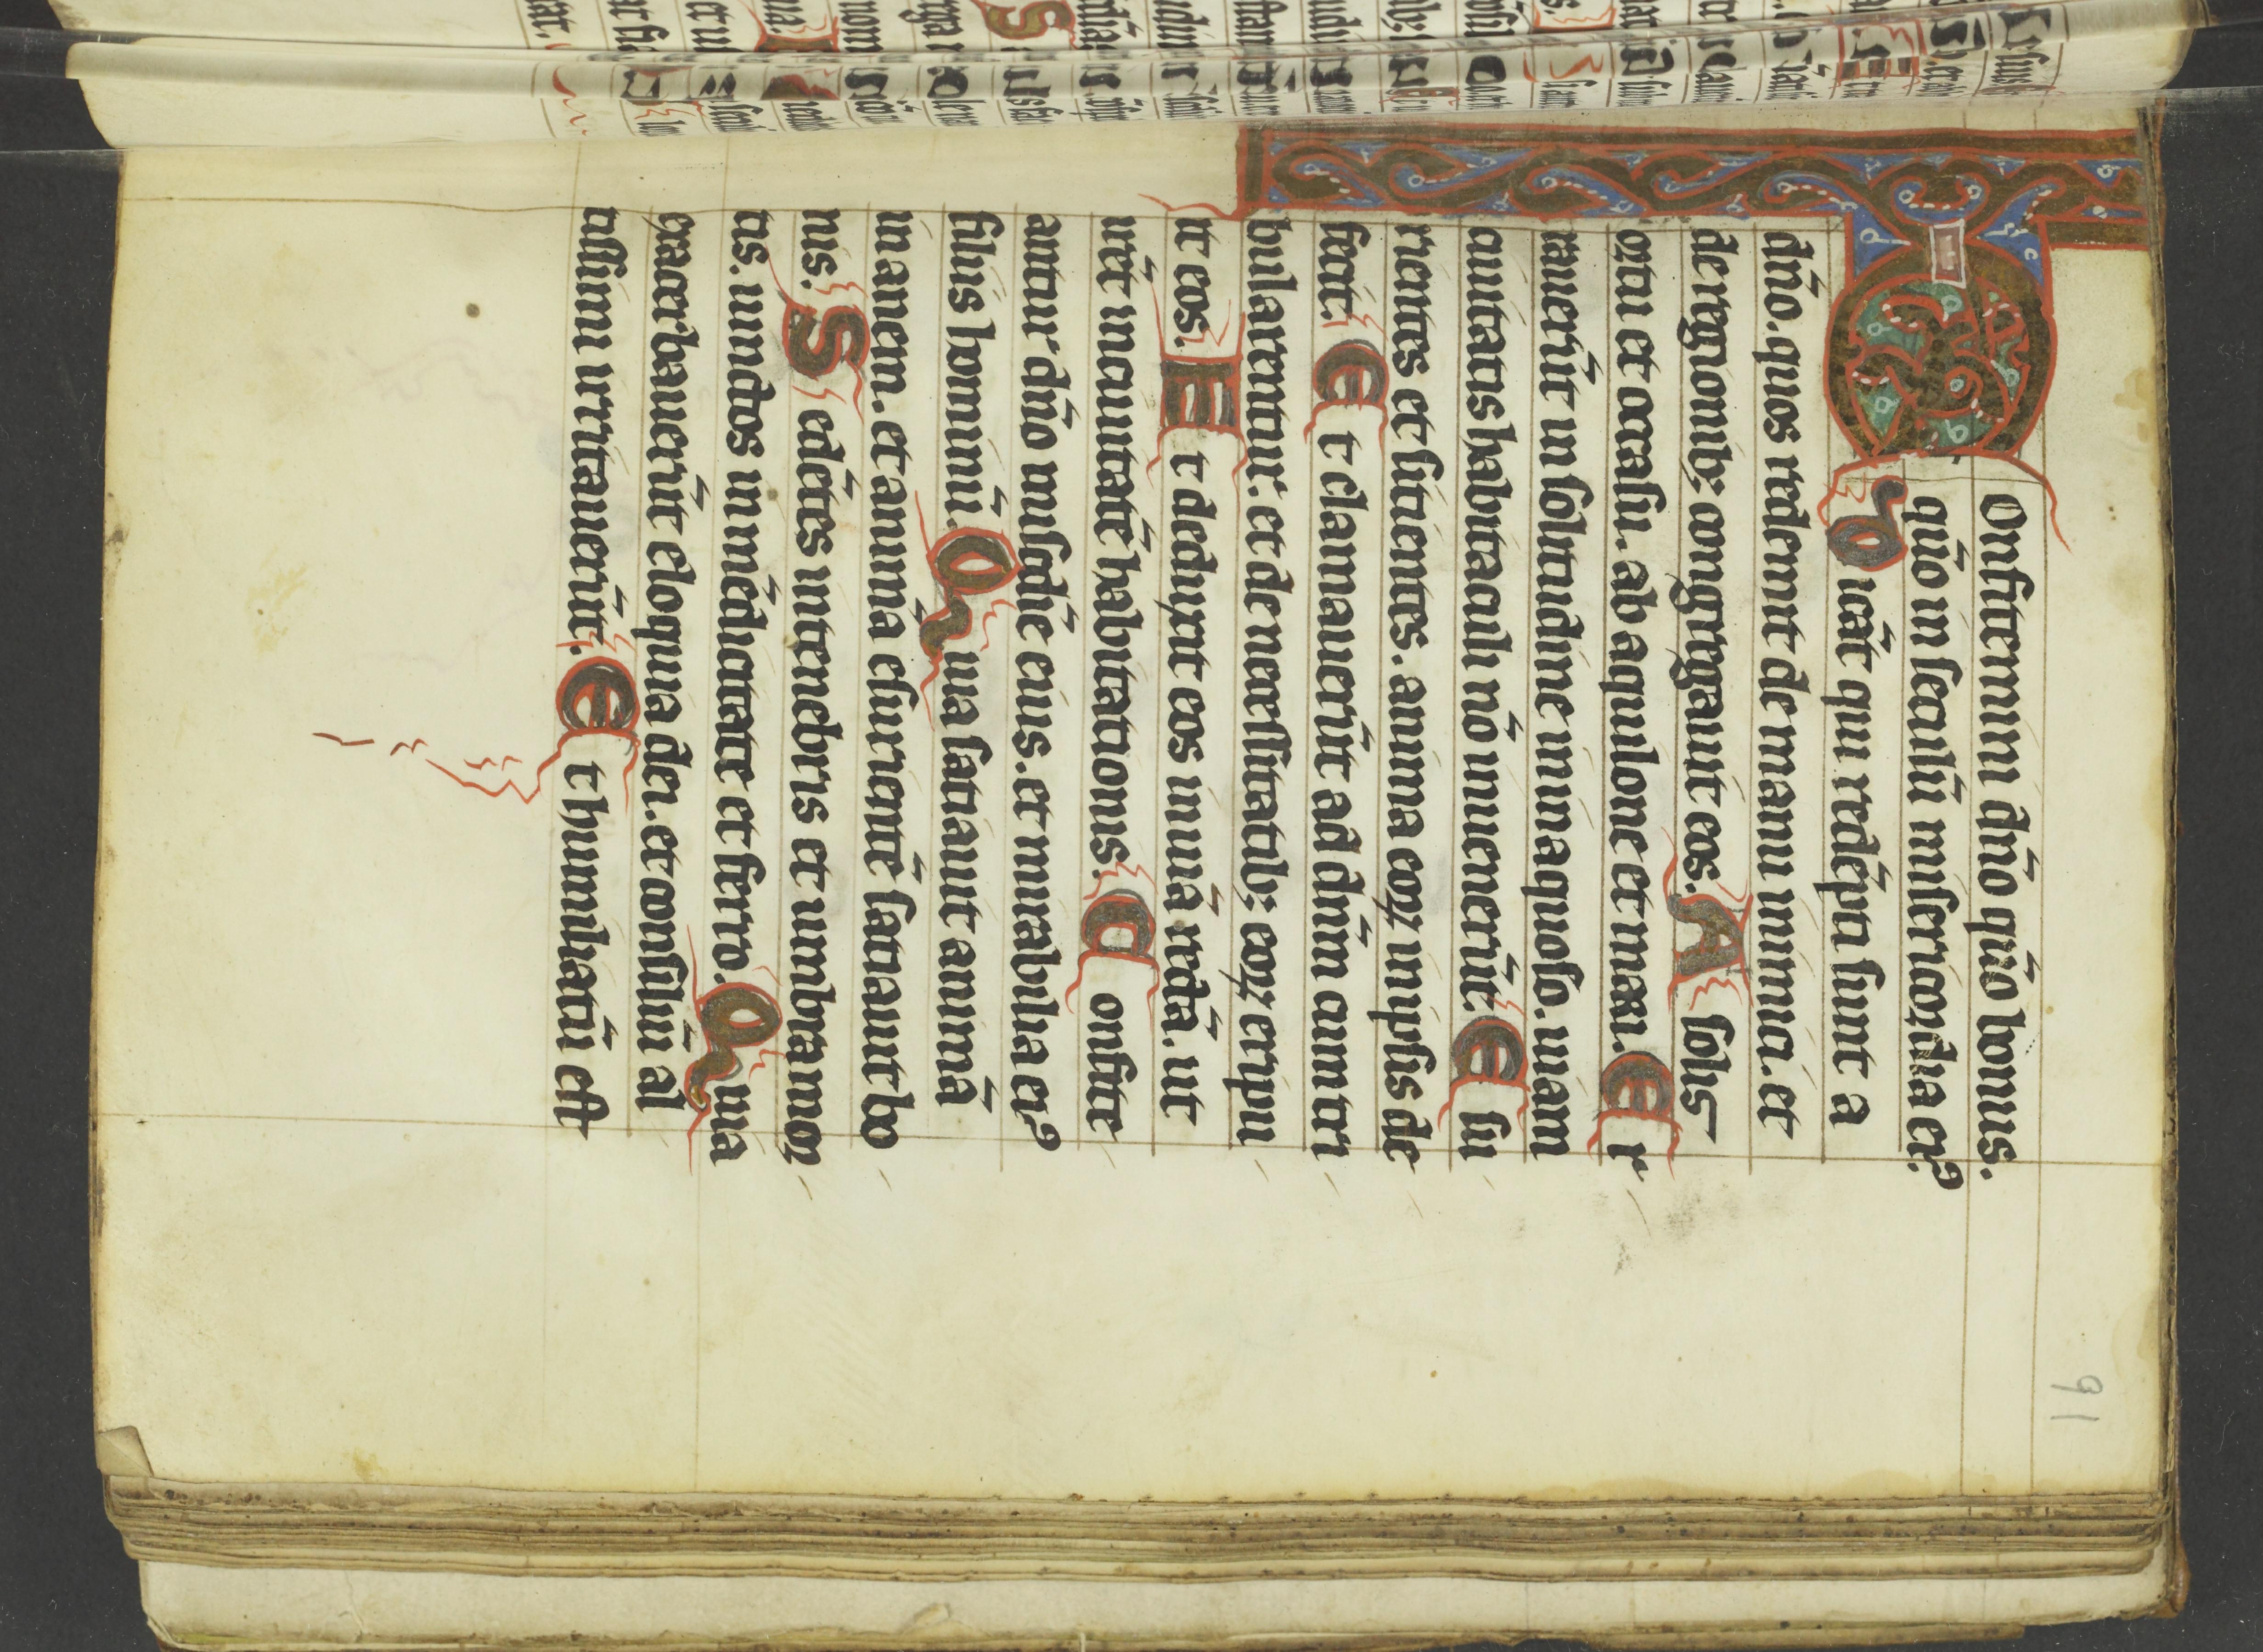 Onfitemini dño qm̃o bonus.
qm̃o in seculũ misericordia ei9.
Dicãt qui redẽpti sunt a
dño. quos redemit de manu inimici. et
de regionibꝫ congregauit eos. A solis
ortu et occasu. ab aquilone et mari. Er
rauerũt in solitudine in inaquoso. uiam
ciuitatis habitaculi nõ inuenerũt. Esu
rientes et sitientes. anima eoꝝ in ipsis de
fecit. Et clamauerũt ad dñm cum tri
bularentur. et de necessitatibꝫ eoꝝ eripu
it eos. Et deduxit eos in uiã rectã. ut
irẽt in ciuitatẽ habitationis. Confite
antur dño misc̃die eius. et mirabilia ei9
filiis hominũ. Quia satiauit animã
inanem. et animã esurientẽ satiauit bo
nis. Sedẽtes in tenebris et umbra mor
tis. uinctos in mẽdicitate et ferro. Quia
exacerbauerũt eloquia dei. et consiliũ al
tissimi irritauerũt. Et humiliatũ est
91